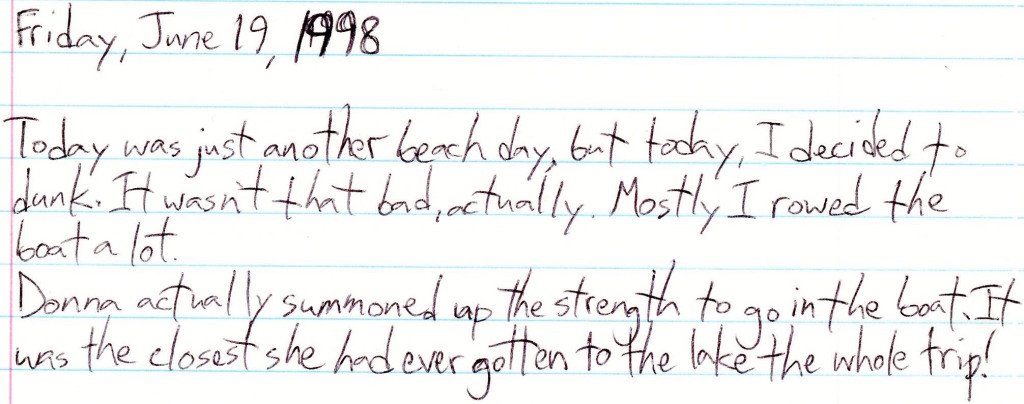 Friday, June 19, 1998
Today was just another beach day, but today, I decided to
dunk. It wasn't that bad, actually. Mostly I rowed the
boat a lot.
Donna actually summoned up the strength to go in the boat. It
was the closest she had ever gotten to the lake the whole trip!